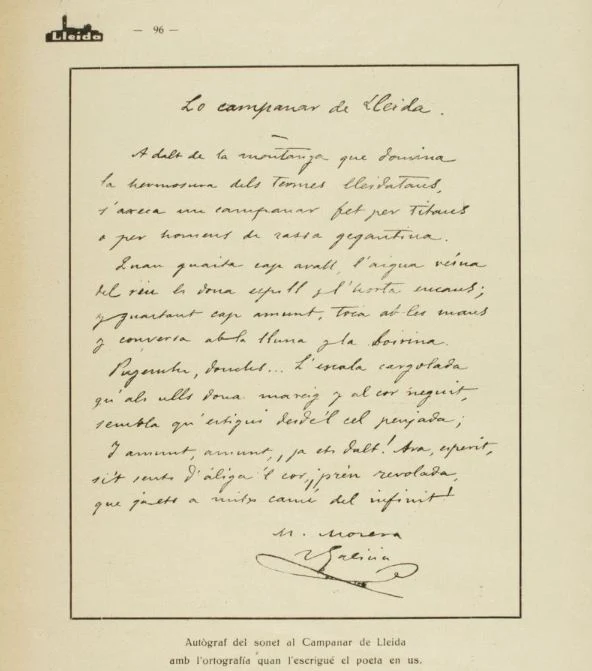 Lleida
— 96 —
Lo campanar de Lleida.
A dalt de la montanya que domina
la hermosura dels termes lleidatans,
s'axeca un campanar fet per titans
o per homens de rassa gegantina.
Quan guaita cap avall, l'aigua vehina
del riu li dona espill y l'horta encans;
y guaitant cap amunt, toca ab les mans
y conversa ab la lluna y la boirina.
Pugemhi, donchs... L'escala cargolada
qu'als ulls dona mareig y al cor neguit,
sembla qu'estigui desde'l cel penjada;
I amunt, amunt, ja ets dalt! Ara, esperit,
si't sents d'áliga'l cor, ¡prén revolada,
que ja ets a mitx camí del infinit!
M. Morera
y Galicia
Autògraf del sonet al Campanar de Lleida
amb l'ortografía quan l'escrigué el poeta en us.